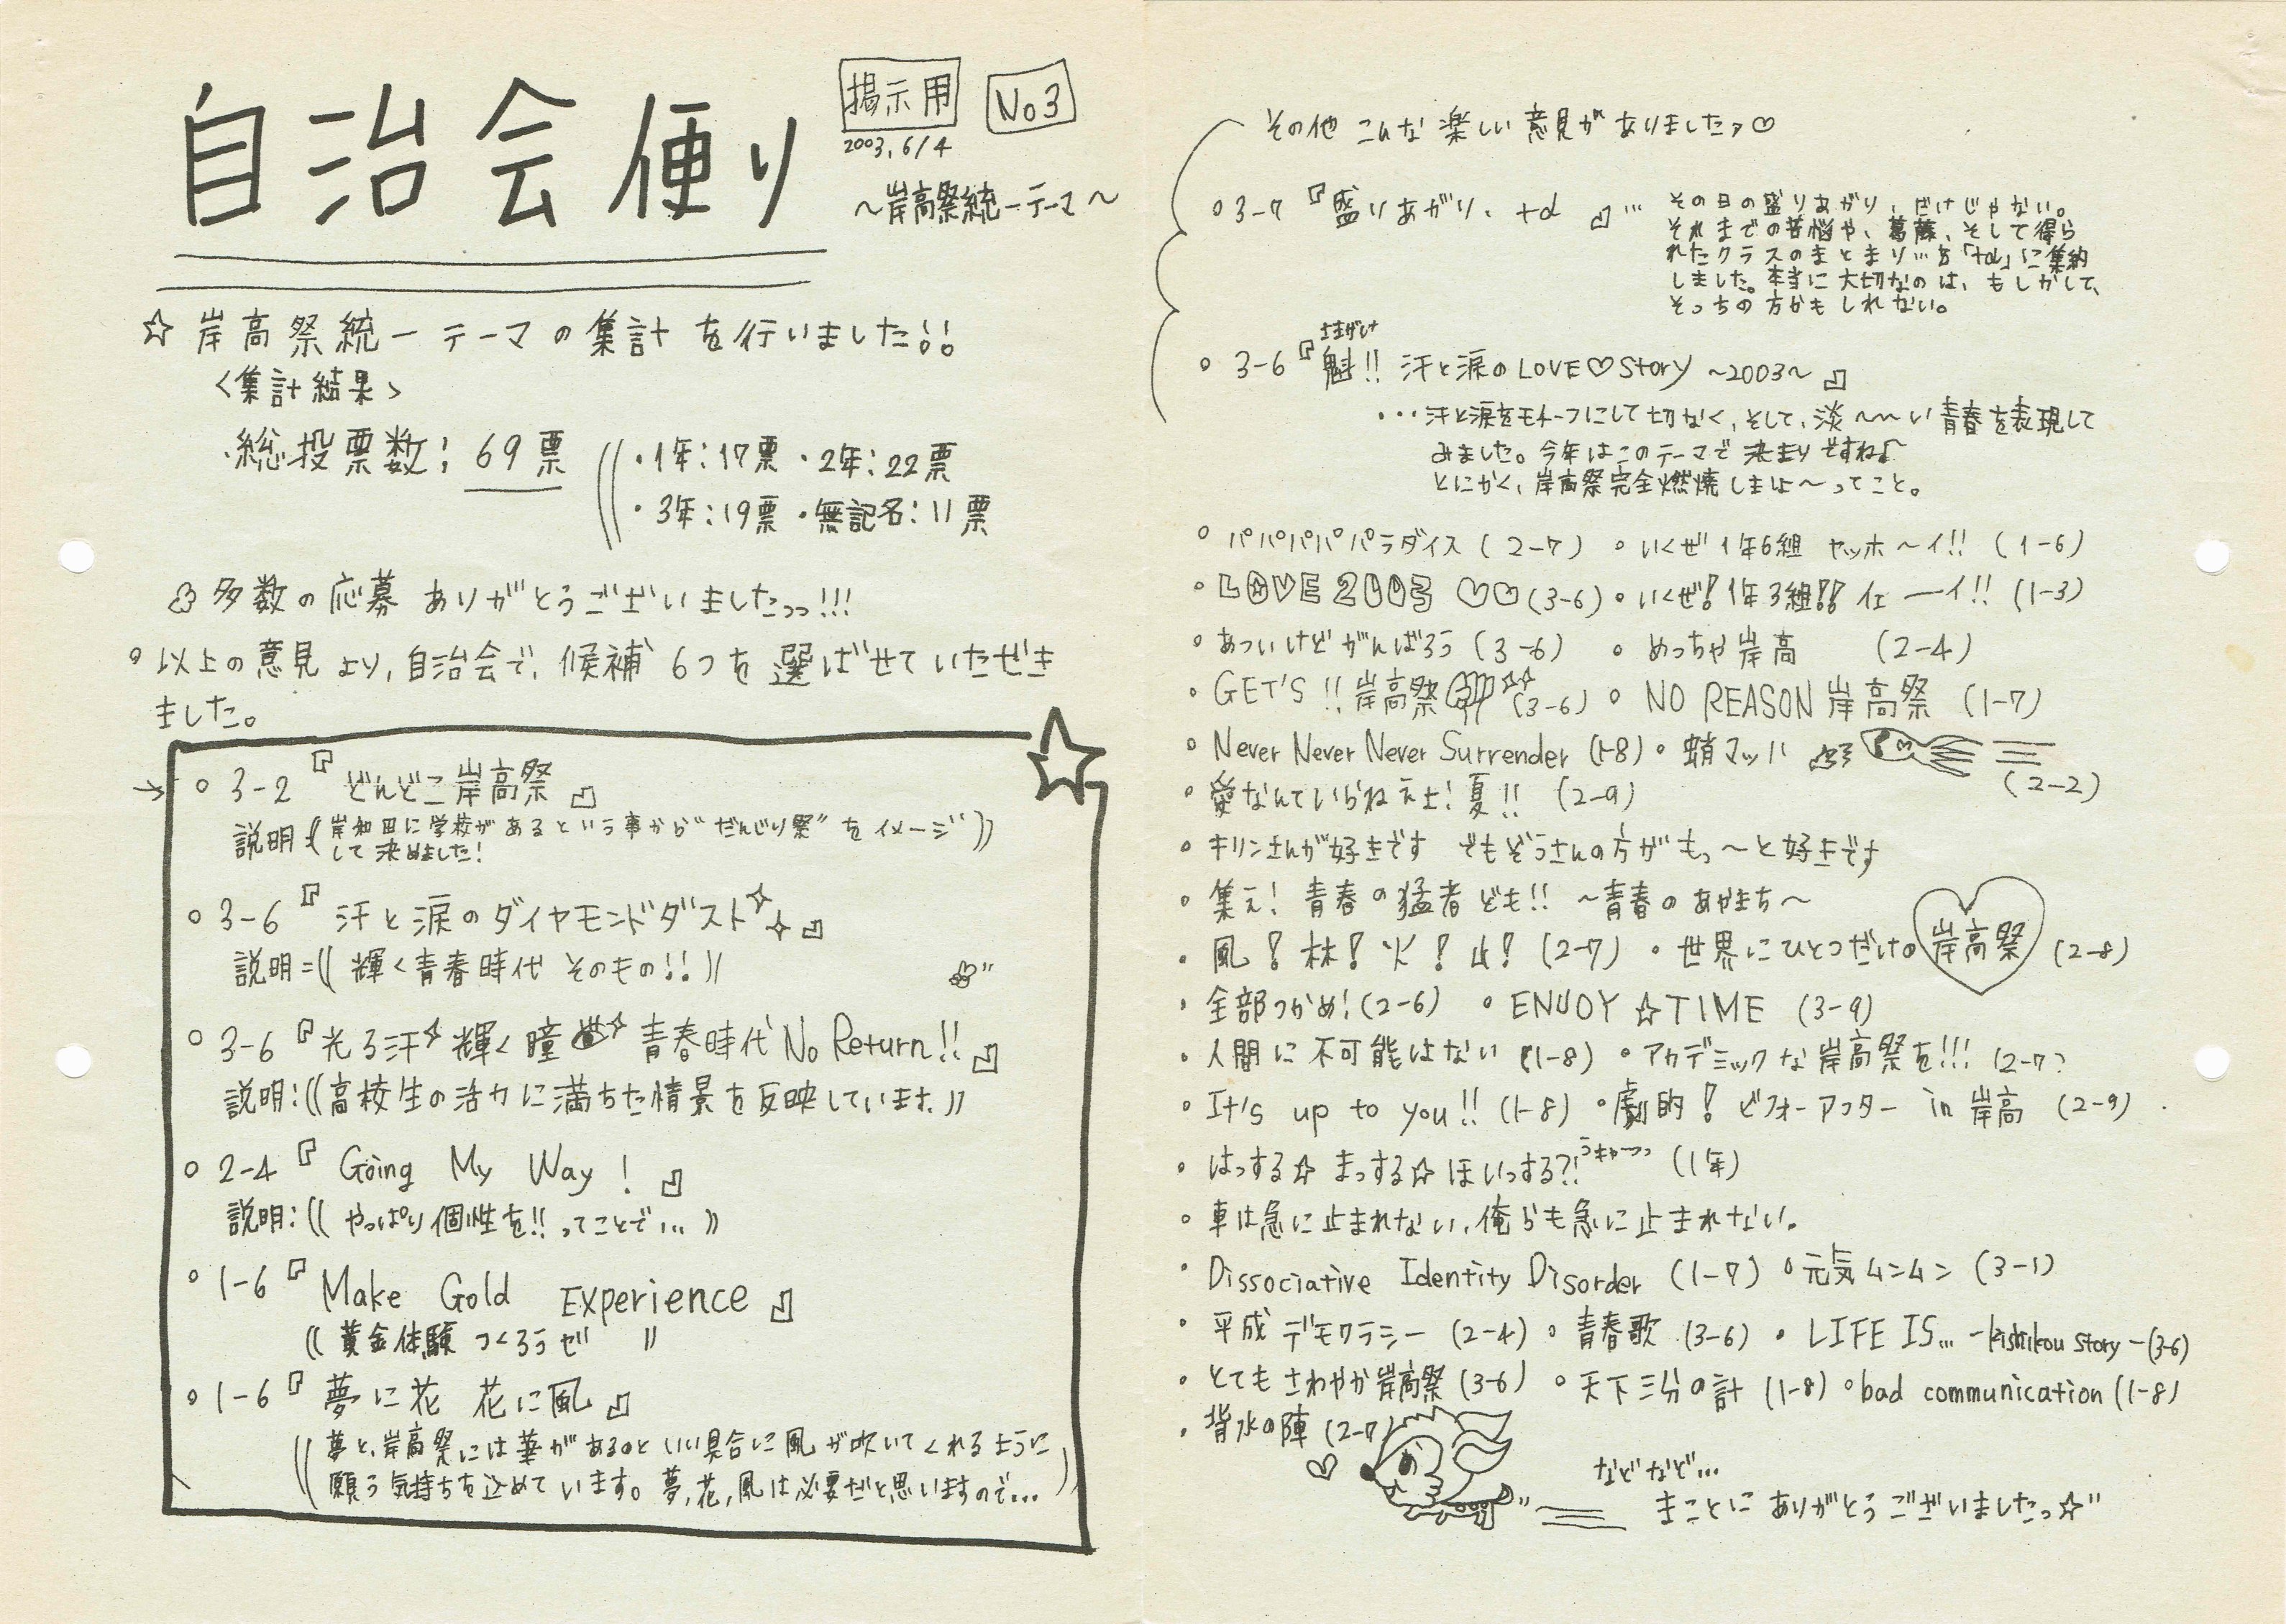 自治会便り
掲示用
No3
2003.6/4
～岸高祭統一テーマ～
☆ 岸高祭統一テーマの集計を行いました!!
<集計結果>
総投票数: 69票
・1年:17票 ・2年:22票
・3年:19票 ・無記名:11票
多数の応募ありがとうございましたっっ!!!
○以上の意見より,自治会で,候補6つを選ばせていただき
ました。
→ ○ 3-2『どんどこ岸高祭』
説明:((岸和田に学校があるという事から"だんじり祭"をイメージ))
して決めました!
○ 3-6『汗と涙のダイヤモンドダスト』
説明=((輝く青春時代そのもの!!))
○ 3-6『光る汗 輝く瞳 青春時代 No Return!!』
説明:((高校生の活力に満ちた情景を反映しています))
○ 2-4『Going My Way !』
説明:((やっぱり個性を!!ってことで…))
○ 1-6『Make Gold Experience』
((黄金体験つくろうぜ))
○ 1-6『夢に花 花に風』
((夢と,岸高祭には華があるのといい具合に風が吹いてくれるように
願う気持ちを込めています。夢,花,風は必要だと思いますので…))
その他 こんな楽しい意見がありましたァ♡
○3-7『盛りあがり、+α』…その日の盛りあがり、だけじゃない。
それまでの苦悩や、葛藤、そして得ら
れたクラスのまとまり…を「+α」に集約
しました。本当に大切なのは、もしかして、
そっちの方かもしれない。
さきがけ
○ 3-6『魁!! 汗と涙のLOVE♡Story ～2003～』
…汗と涙をモチーフにして切なく,そして,淡～～い青春を表現して
みました。今年はこのテーマで決まりですね♪
とにかく,岸高祭完全燃焼しましょ～ってこと。
○ パパパパパラダイス (2-7) ○ いくぜ1年6組 ヤッホ～イ!! (1-6)
○ LOVE 2003 ♡♡(3-6) ○ いくぜ!1年3組!! イェーイ!! (1-3)
○ あついけどがんばろう (3-6) ○ めっちゃ岸高 (2-4)
○ GET'S !! 岸高祭 (3-6) ○ NO REASON 岸高祭 (1-7)
○ Never Never Never Surrender (1-8) ○ 蛸マッハ (2-2)
○ 愛なんていらねえよ!夏!! (2-9)
○ キリンさんが好きです でもぞうさんの方がもっ～と好きです
○ 集え! 青春の猛者ども!! ～青春のあやまち～
○ 風!林!火!山! (2-7) ○ 世界にひとつだけの岸高祭 (2-8)
○ 全部つかめ!(2-6) ○ ENJOY ☆TIME (3-9)
○ 人間に不可能はない (1-8) ○ アカデミックな岸高祭を!!! (2-7)
○ It's up to you!! (1-8) ○ 劇的!ビフォーアフター in 岸高 (2-9)
○ はっする☆ まっする☆ ほいっする?! うきゃーっっ (1年)
○ 車は急に止まれない,俺らも急に止まれない。
○ Dissociative Identity Disorder (1-7) ○ 元気ムンムン (3-1)
○ 平成デモクラシー (2-4) ○ 青春歌 (3-6) ○ LIFE IS… -kishikou story-(3-6)
○ とてもさわやか岸高祭 (3-6) ○ 天下三分の計 (1-8) ○bad communication (1-8)
○ 背水の陣 (2-7)
などなど…
まことにありがとうございましたっ☆"